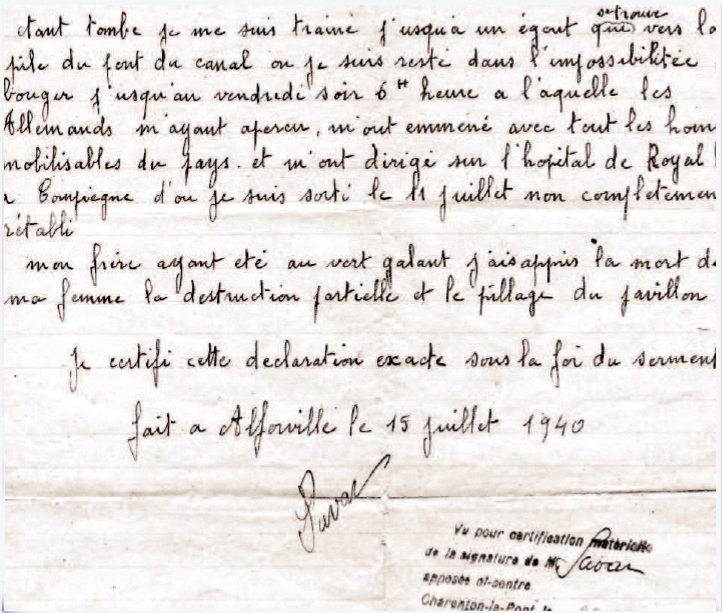 étant tombé je me suis trainé j'usquà un égout qui se trouve vers la
pile du pont du canal ou je suis resté dans l'impossibilitée
bouger j'usqu'au vendredi soir 6H heure a l'aquelle les
Allemands m'ayant apercu, m'ont emmené avec tout les hom
mobilisables du pays. et m'ont dirigé sur l'hopital de Royal
a Compiegne d'ou je suis sorti le 11 juillet non completemen
rétabli
mon frère ayant eté au vert galant j'aisappris la mort de
ma femme la destruction partielle et le pillage du pavillon
je certifi cette declaration exacte sous la foi du serment
fait a Alforville le 15 juillet 1940
Vu pour certification matérielle
de la signature de Mr
apposée ci-contre
Charenton-le-Pont, le